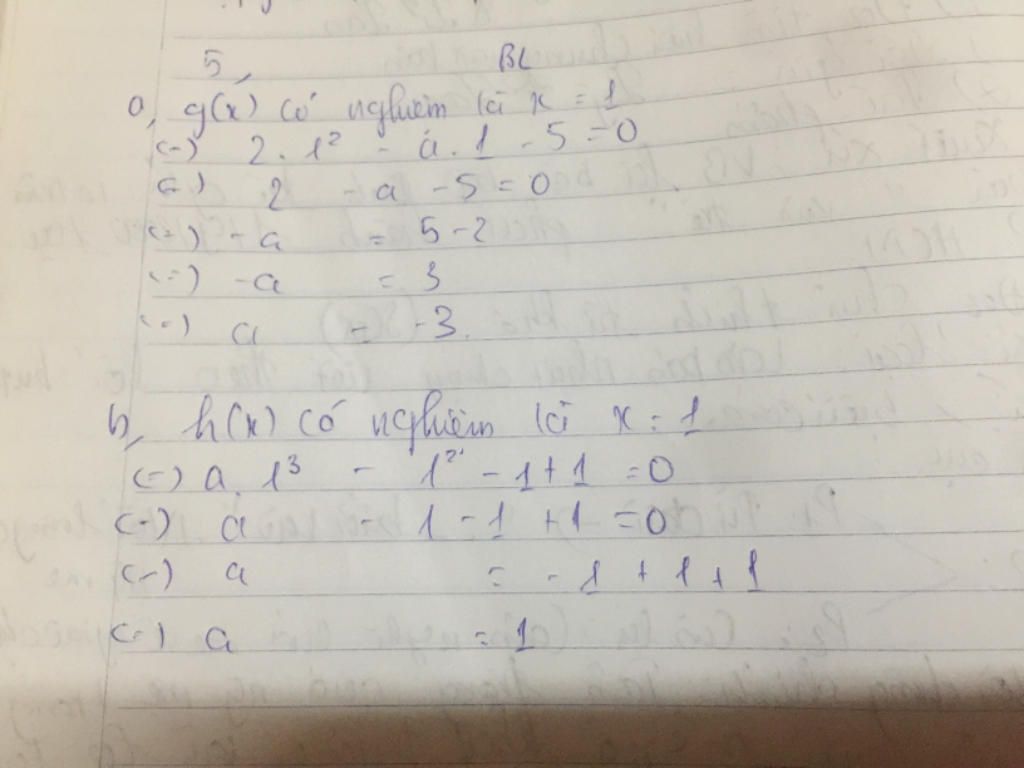 5, BL
a, g(x) có nghiệm là x = 1
(=) 2 . 1² - a . 1 - 5 = 0
(=) 2 - a - 5 = 0
(=) - a = 5 - 2
(=) - a = 3
(=) a = -3.
b, h(x) có nghiệm là x = 1
(=) a . 1³ - 1² - 1 + 1 = 0
(=) a - 1 - 1 + 1 = 0
(=) a = - 1 + 1 + 1
(=) a = 1